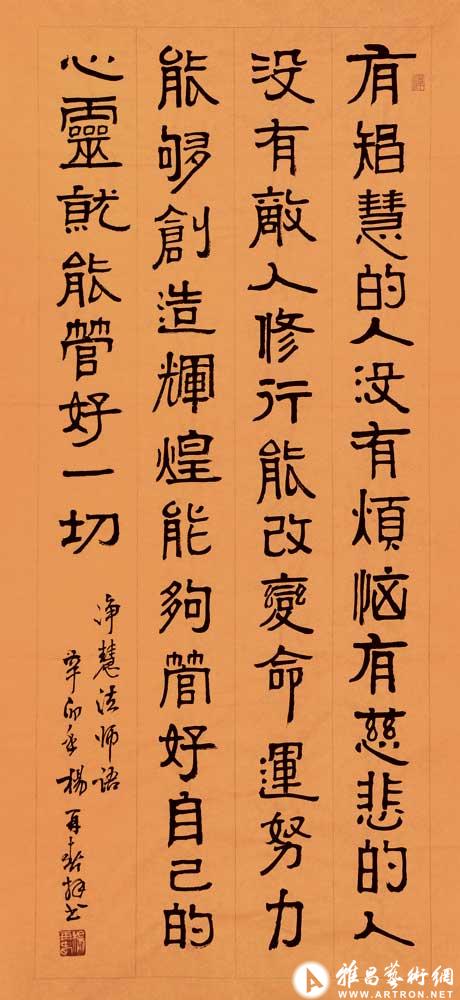 有智慧的人没有煩恼有慈悲的人
没有敵人修行能改變命運努力
能够創造輝煌能夠管好自己的
心靈就能管好一切
净慧法师语
辛卯年楊再春书
雅昌藝術網
WWW.ARTRON.NET